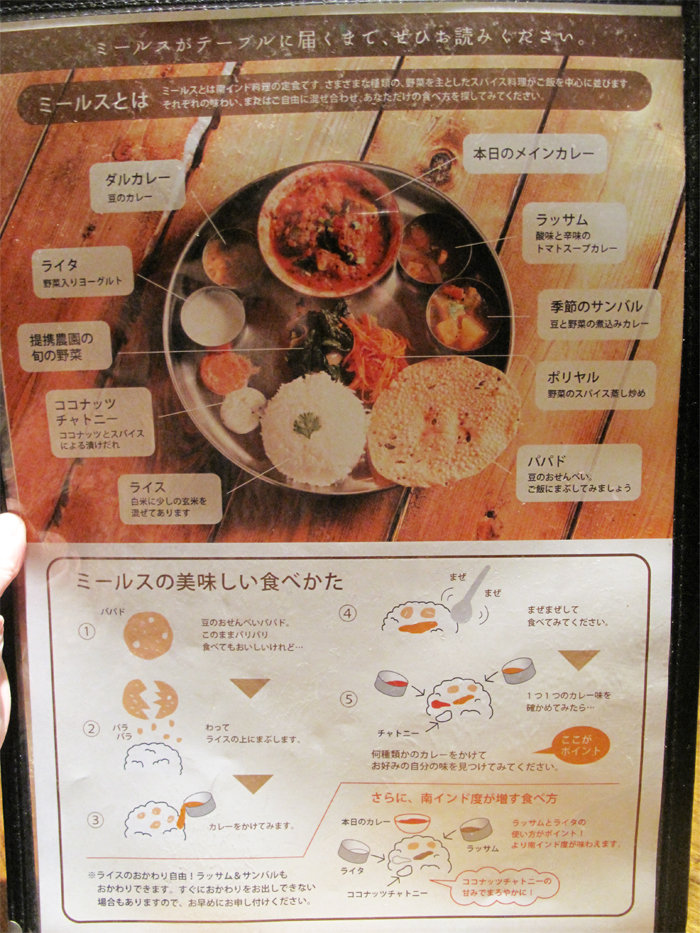 ミールスがテーブルに届くまで、ぜひお読みください。
ミールスとは
ミールスとは南インド料理の定食です。さまざまな種類の、野菜を主としたスパイス料理がご飯を中心に並びます。
それぞれの味わい、またはご自由に混ぜ合わせ、あなただけの食べ方を探してみてください。
本日のメインカレー
ダルカレー
豆のカレー
ラッサム
酸味と辛味の
トマトスープカレー
ライタ
野菜入りヨーグルト
季節のサンバル
豆と野菜の煮込みカレー
提携農園の
旬の野菜
ポリヤル
野菜のスパイス蒸し炒め
ココナッツ
チャトニー
ココナッツとスパイス
による漬けだれ
パパド
豆のおせんべい。
ご飯にまぶしてみましょう
ライス
白米に少しの玄米を
混ぜてあります
ミールスの美味しい食べかた
パパド
①
豆のおせんべいパパド。
このままパリパリ
食べてもおいしいけれど…
②
パラ
パラ
わって
ライスの上にまぶします。
③
カレーをかけてみます。
④
まぜ
まぜ
まぜまぜして
食べてみてください。
⑤
チャトニー
1つ1つのカレー味を
確かめてみたら…
何種類かのカレーをかけて
お好みの自分の味を見つけてみてください。
ここが
ポイント
さらに、南インド度が増す食べ方
本日のカレー
ラッサム
ライタ
ココナッツチャトニー
ラッサムとライタの
使い方がポイント！
より南インド度が味わえます。
ココナッツチャトニーの
甘みでまろやかに！
※ライスのおかわり自由！ラッサム＆サンバルも
おかわりできます。すぐにおかわりをお出しできない
場合もありますので、お早めにお申し付けください。